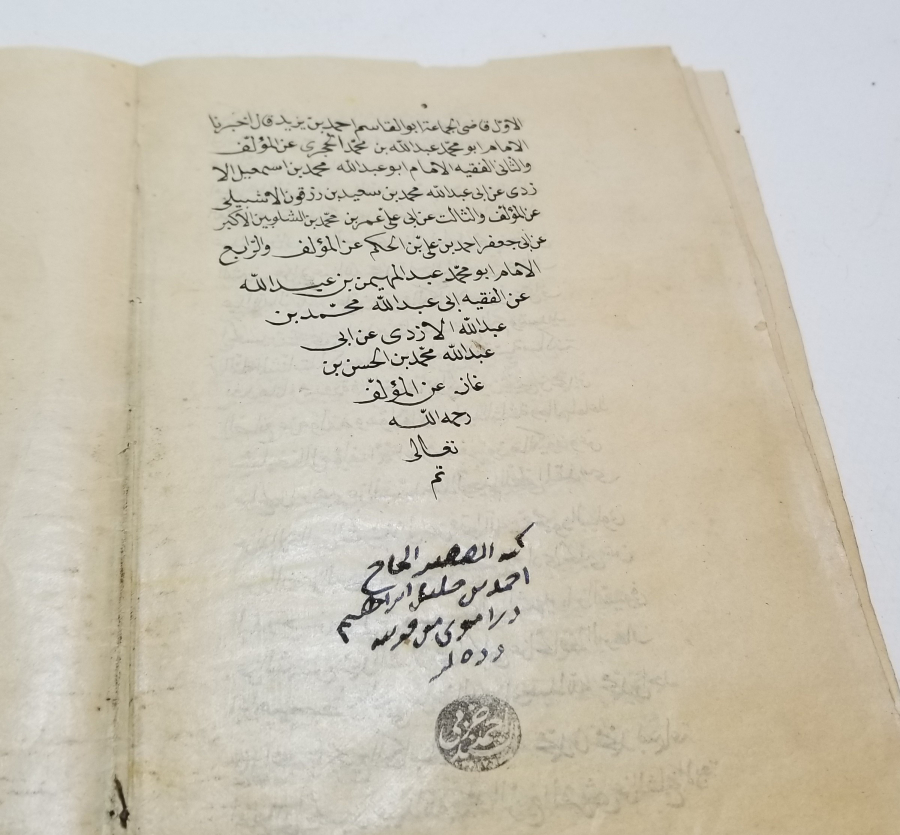 الاول قاضى الجماعة ابو القاسم احمد بن يزيد قال اخبرنا
الامام ابو محمد عبد الله بن محمد الحجرى عن المؤلف
والثانى الفقيه الامام ابو عبد الله محمد بن اسمعيل الا
زدى عن ابى عبد الله محمد بن سعيد بن زرقون الاشبيلى
عن المؤلف والثالث عن ابى على عمر بن محمد بن الشلوبين الاكبر
عن ابى جعفر احمد بن على بن الحكم عن المؤلف والرابع
الامام ابو محمد عبد المهيمن بن عبد الله
عن الفقيه ابى عبد الله محمد بن
عبد الله الازدى عن ابى
عبد الله محمد بن الحسن بن
غاز عن المؤلف
رحمه الله
تعالى
تم
الحاج
احمد بن خليل ابراهيم